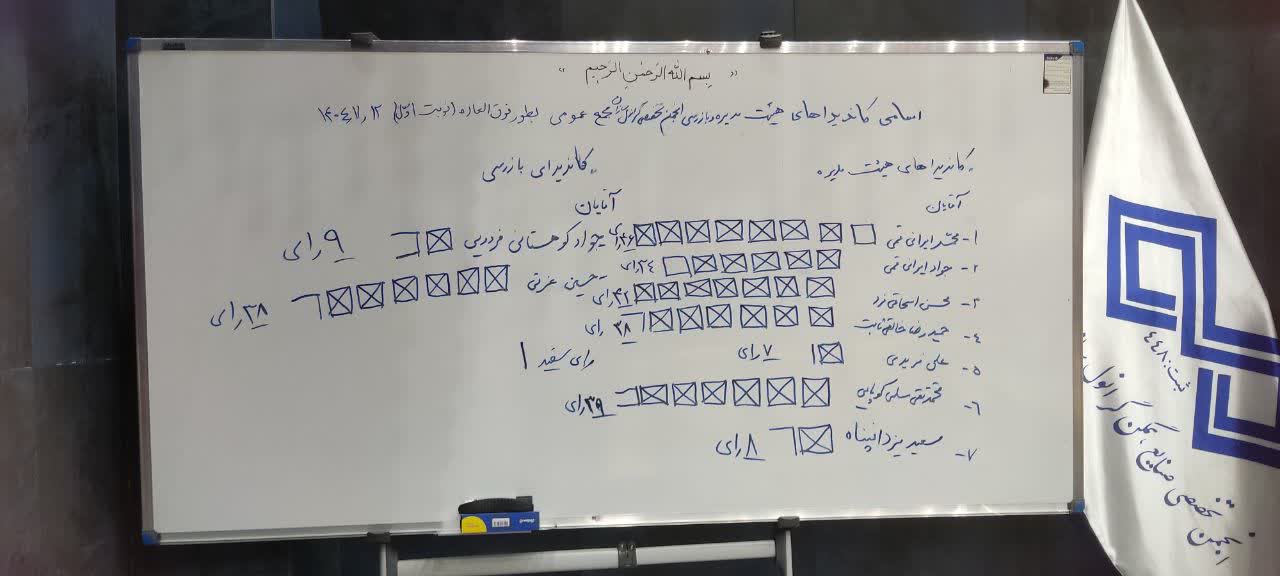 « بسم الله الرحمن الرحیم »
اسامی کاندیداهای هیئت مدیره و بازرسی انجمن تخصصی مجمع عمومی بطور فوق العاده (نوبت اول) ۱۴۰۴٫۷٫۱۲
کاندیداهای هیئت مدیره
آقایان
۱- محمد ایرانی قمی ۴۶ رای
۲- جواد ایرانی قمی ۳۴ رای
۳- محسن اسحاقی نژاد ۴۲ رای
۴- حمیدرضا خالقی ثابت ۳۸ رای
۵- علی فریدی ۷ رای
۶- محمدتقی ۳۹ رای
۷- سعید یزدانپناه ۸ رای
کاندیدای بازرسی
آقایان
- جواد کوهستانی فردویی ۹ رای
- حسین عزتی ۳۸ رای
رای سفید ۱
ثبت: ۴۴۸۰
انجمن تخصصی صنایع همگن گرانول